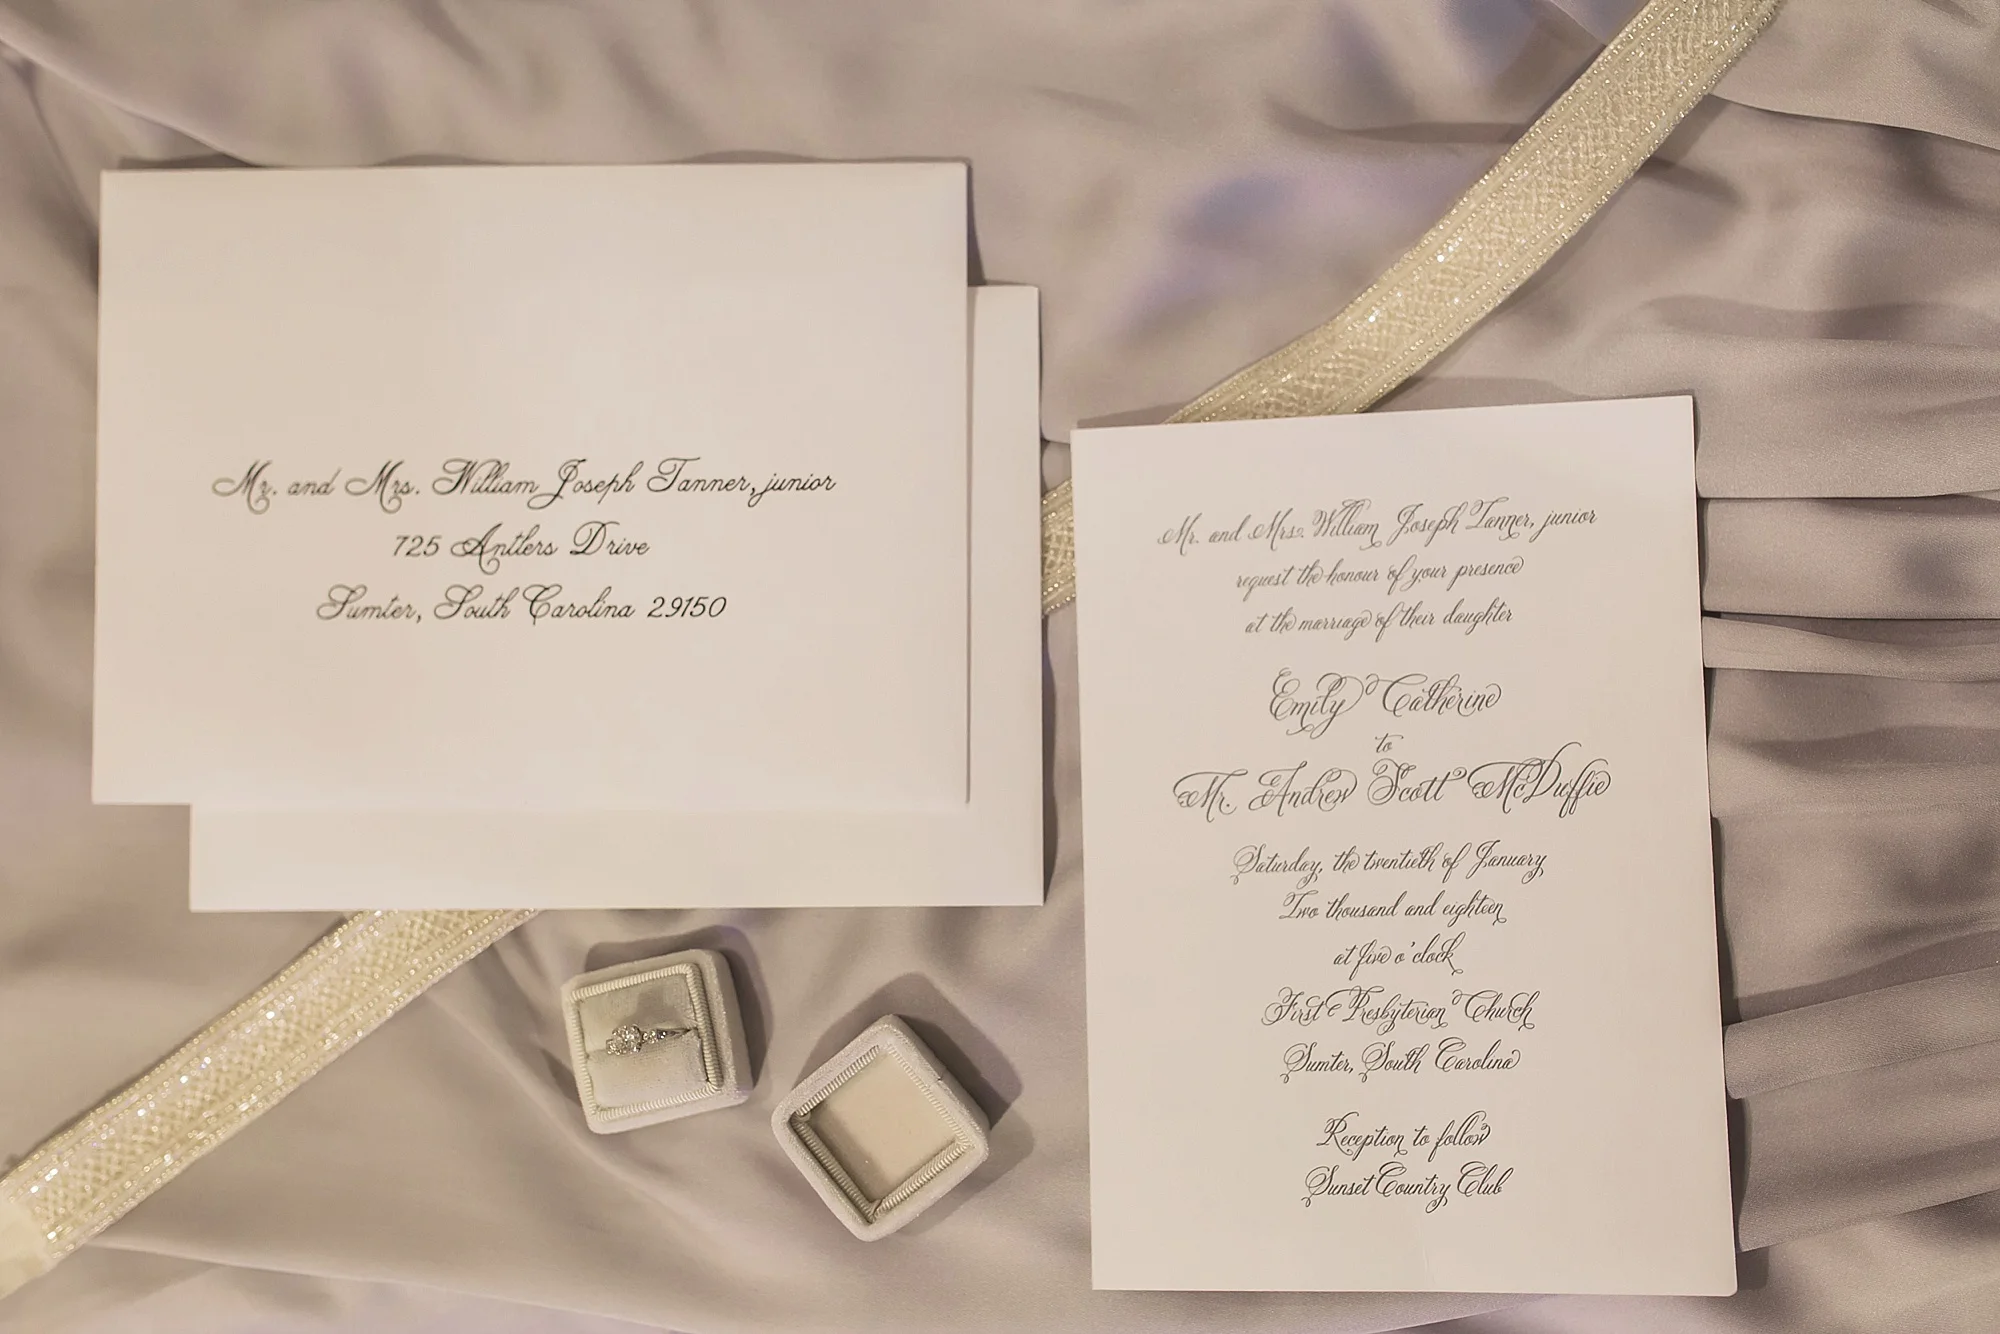 Mr. and Mrs. William Joseph Tanner, junior
725 Antlers Drive
Sumter, South Carolina 29150
Mr. and Mrs. William Joseph Tanner, junior
request the honour of your presence
at the marriage of their daughter
Emily Catherine
to
Mr. Andrew Scott McDuffie
Saturday, the twentieth of January
Two thousand and eighteen
at five o'clock
First Presbyterian Church
Sumter, South Carolina
Reception to follow
Sunset Country Club